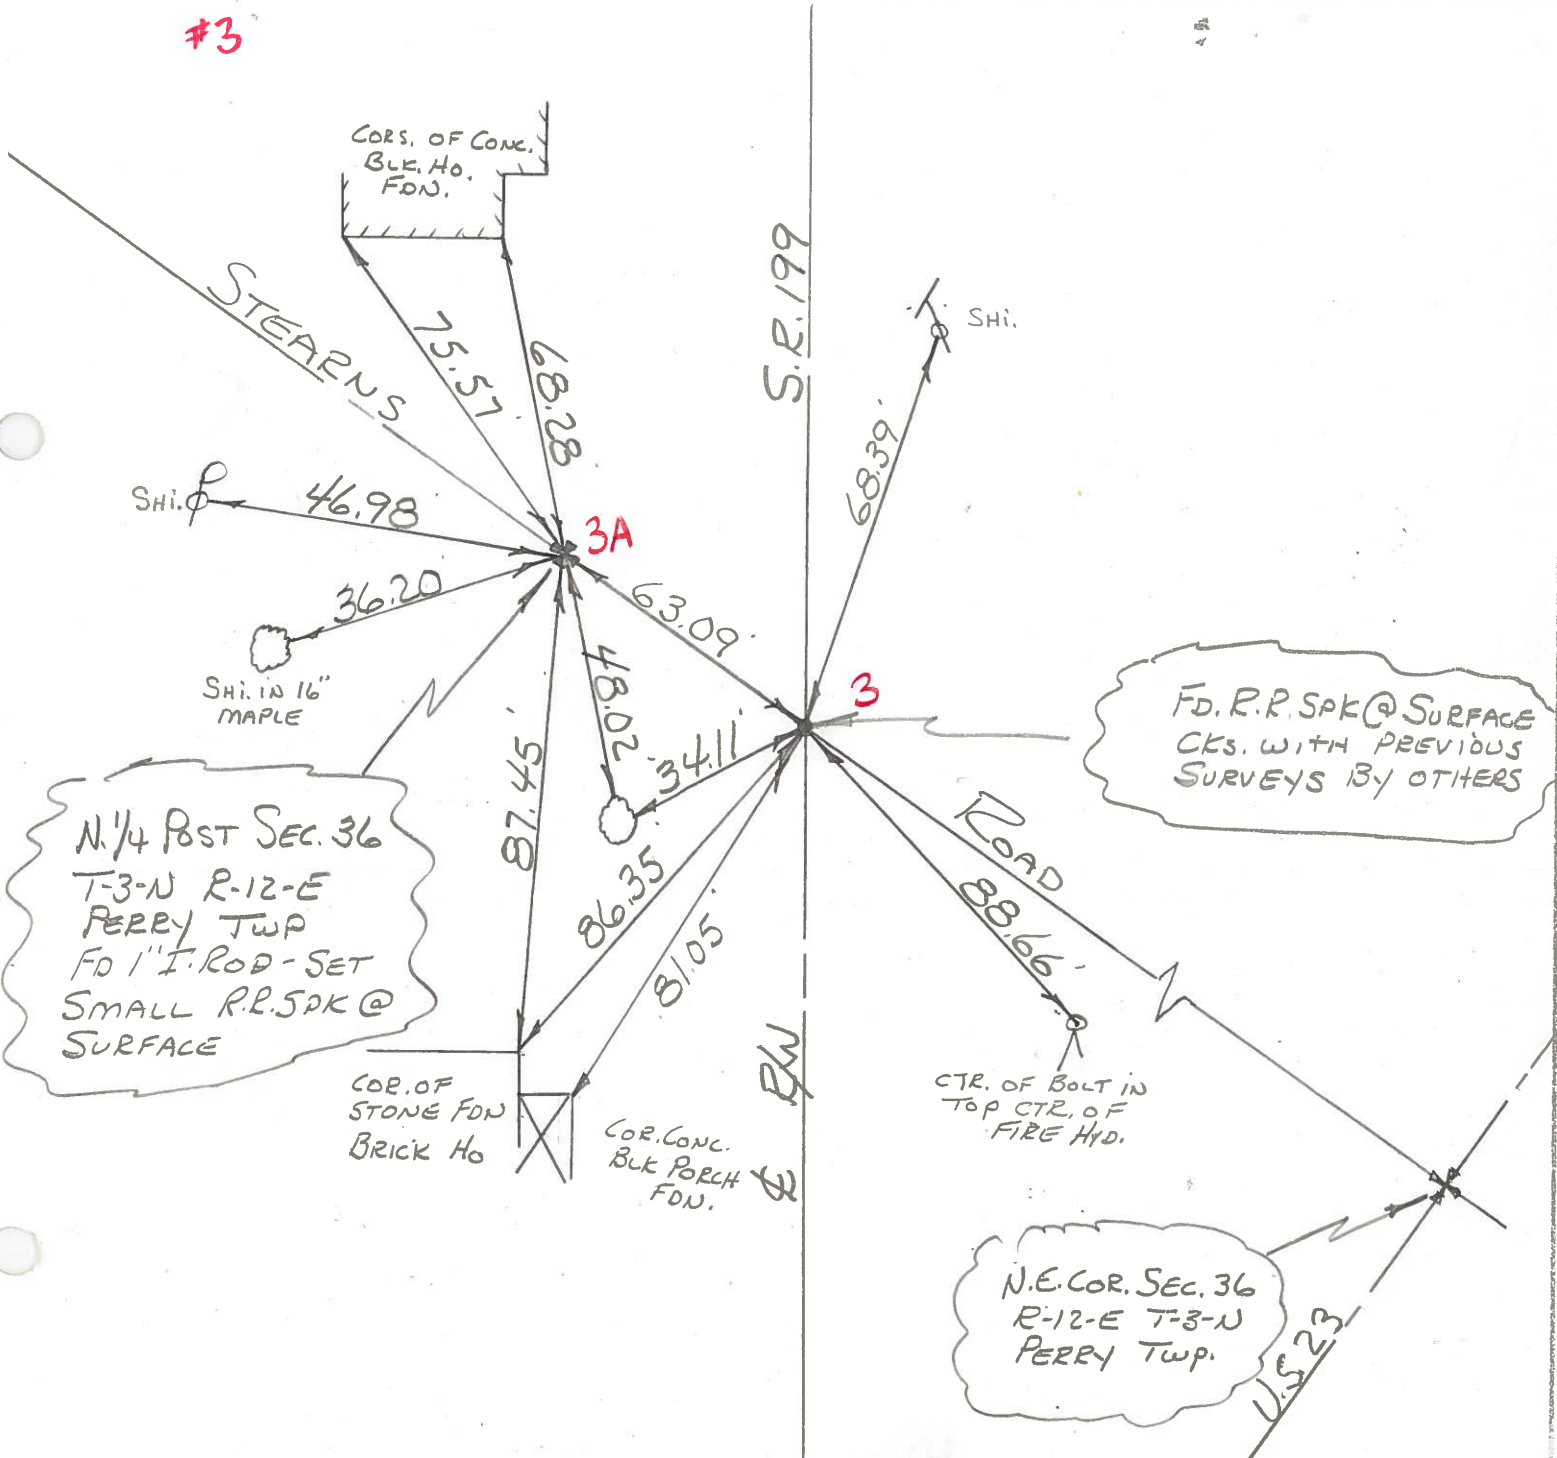 #3
CORS. OF CONC.
BLK. HO.
FDN.
STEARNS
75.57'
68.28
S.R. 199
SHI.
68.39'
SHI.
46.98
3A
36.20
63.09'
SHI. IN 16"
MAPLE
48.02'
3
34.11'
87.45'
FD. R.R. SPK @ SURFACE
CKS. WITH PREVIOUS
SURVEYS BY OTHERS
N. 1/4 POST SEC. 36
T-3-N R-12-E
PERRY TWP
FD 1" I. ROD - SET
SMALL R.R. SPK @
SURFACE
ROAD
86.35
81.05'
88.66'
COR. OF
STONE FDN
BRICK HO
COR. CONC.
BLK PORCH
FDN.
℄ R/W
CTR. OF BOLT IN
TOP CTR. OF
FIRE HYD.
N.E. COR. SEC. 36
R-12-E T-3-N
PERRY TWP.
U.S 23